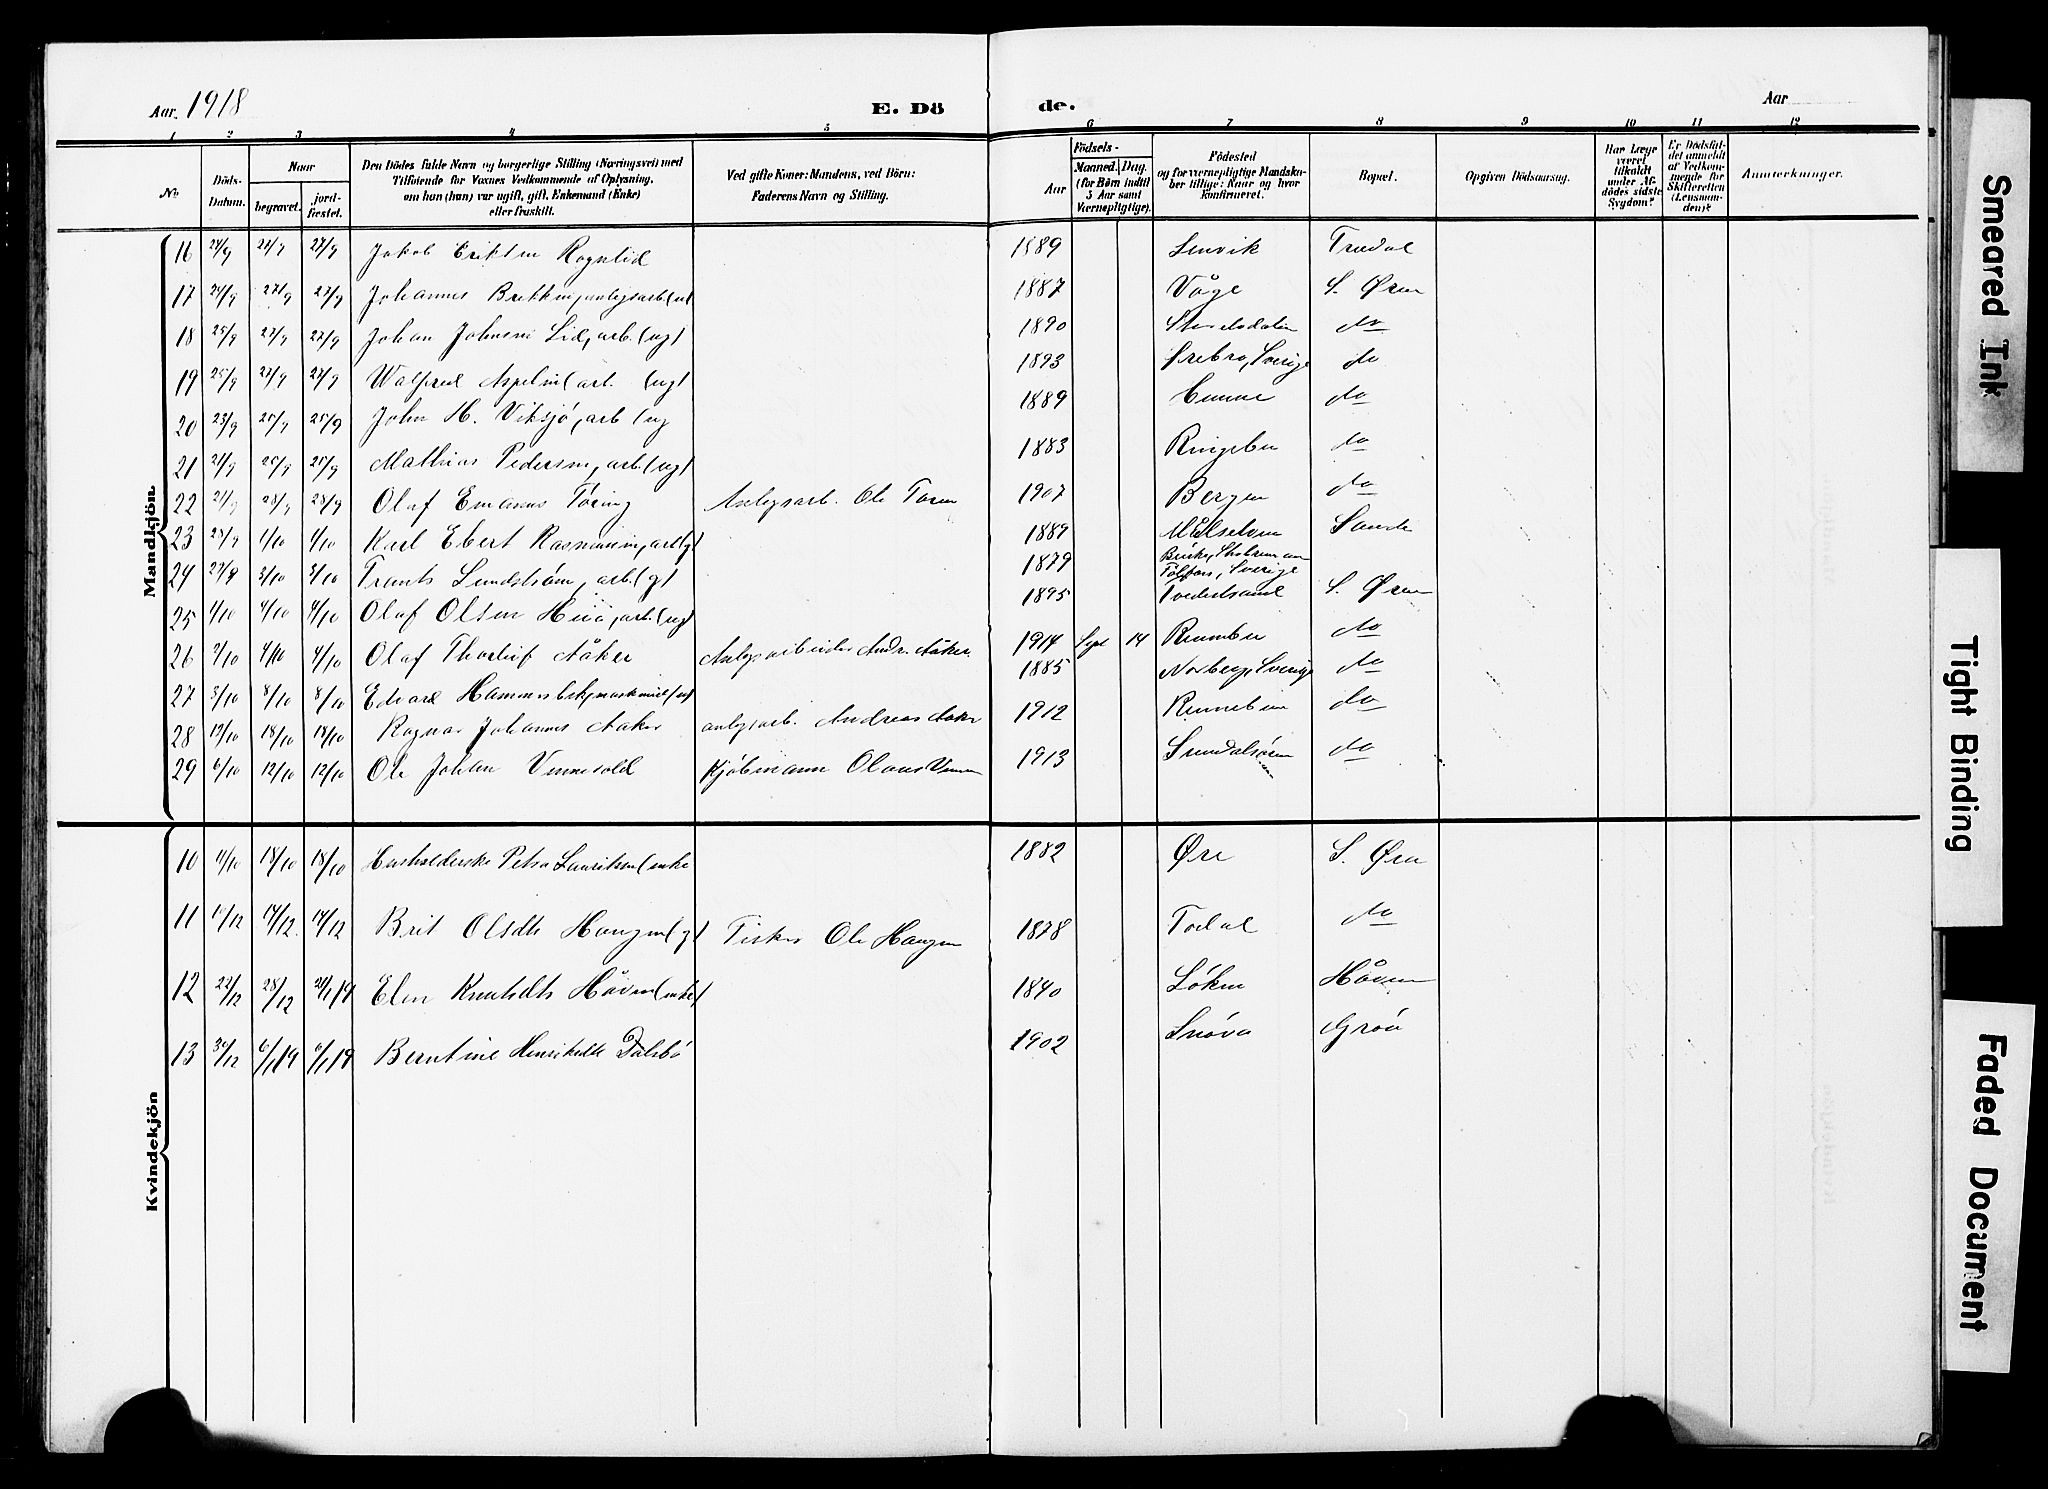 Aar. 1918 E. Dö de. Aar
1 2 3 4 5 6 7 8 9 10 11 12
No
Döds-Datum.
Naar
begravet.
jord-fæstet.
Den Dödes fulde Navn og borgerlige Stilling (Næringsvei) med
Tilföiende for Voxnes Vedkommende af Oplysning,
om han (hun) var ugift, gift, Enkemand (Enke)
eller fraskilt.
Ved gifte Koner: Mandens, ved Börn:
Faderens Navn og Stilling.
Födsels-
Aar
Maaned.
Dag.
(for Börn indtil
5 Aar samt
Værnepligtige).
Födested
og for værnepligtige Mandska-
ber tillige: Naar og hvor
konfirmeret.
Bopæl.
Opgiven Dödsaarsag.
Har Læge
været
tilkaldt
under Af-
dödes sidste
Sygdom?
Er Dödsfal-
det anmeldt
af Vedkom-
mende for
Skifteretten
(Lensman-
den)?
Anmærkninger.
Mandkjön.
16 24/9 27/9 27/9 Jakob Eriksen Rognlid 1889 Lenvik Tredal
17 24/9 27/9 27/9 Johannes Brekken, anlegsarb. (ug) 1887 Våge S. Øren
18 25/9 27/9 27/9 Johan Johnsen Lid, arb. (ug) 1890 do
19 25/9 27/9 27/9 Walfred Aspelin (arb. (ug) 1893 Ørebro, Sverige do
20 23/9 25/9 25/9 John H. Viksjö, arb (ug 1889 do
21 21/9 25/9 25/9 Mathias Pedersen, arb. (ug) 1883 Ringebu do
22 21/9 28/9 28/9 Olaf Emanus Töring Anlegsarb. Ole 1907 Bergen do
23 28/9 1/10 1/10 Karl Ebert Rasmussen, arb (g) 1889 Målselven Sande
24 27/9 3/10 3/10 Frants Lundström, arb. (g) 1879 Sverige
25 1/10 4/10 4/10 Olaf Olsen arb. (ug) 1895 S. Øren
26 2/10 4/10 4/10 Olaf Thorleif Aåker Anlegsarbeider Andr. Aåker. 1914 Sept 14 Rennebu do
27 3/10 8/10 8/10 Edvard 1885 Norberg, Sverige do
28 12/10 18/10 18/10 Ragnar Johannes Aaker anlegsarb. Andreas Aaker 1912 Rennebu do
29 6/10 12/10 12/10 Ole Johan Vinnesold Kjöbmann Olaus 1913 Sundalsören do
Kvindekjön
10 11/10 18/10 18/10 Husholderske Petra Lauritsen (enke 1882 Øre S. Øra
11 10/12 14/12. 14/12 Brit Olsdtr Haugen (g) Fisker Ole Haugen 1878 Todal do
12 22/12 28/12 Elen Knutsdtr Håven (enke) 1840 Løken Håven
13 30/12 6/1 19 6/1 19 Berntine Henriksdtr Dalsbö 1902 Snåsa Gröa
Smeared Ink
Tight Binding
Faded Document